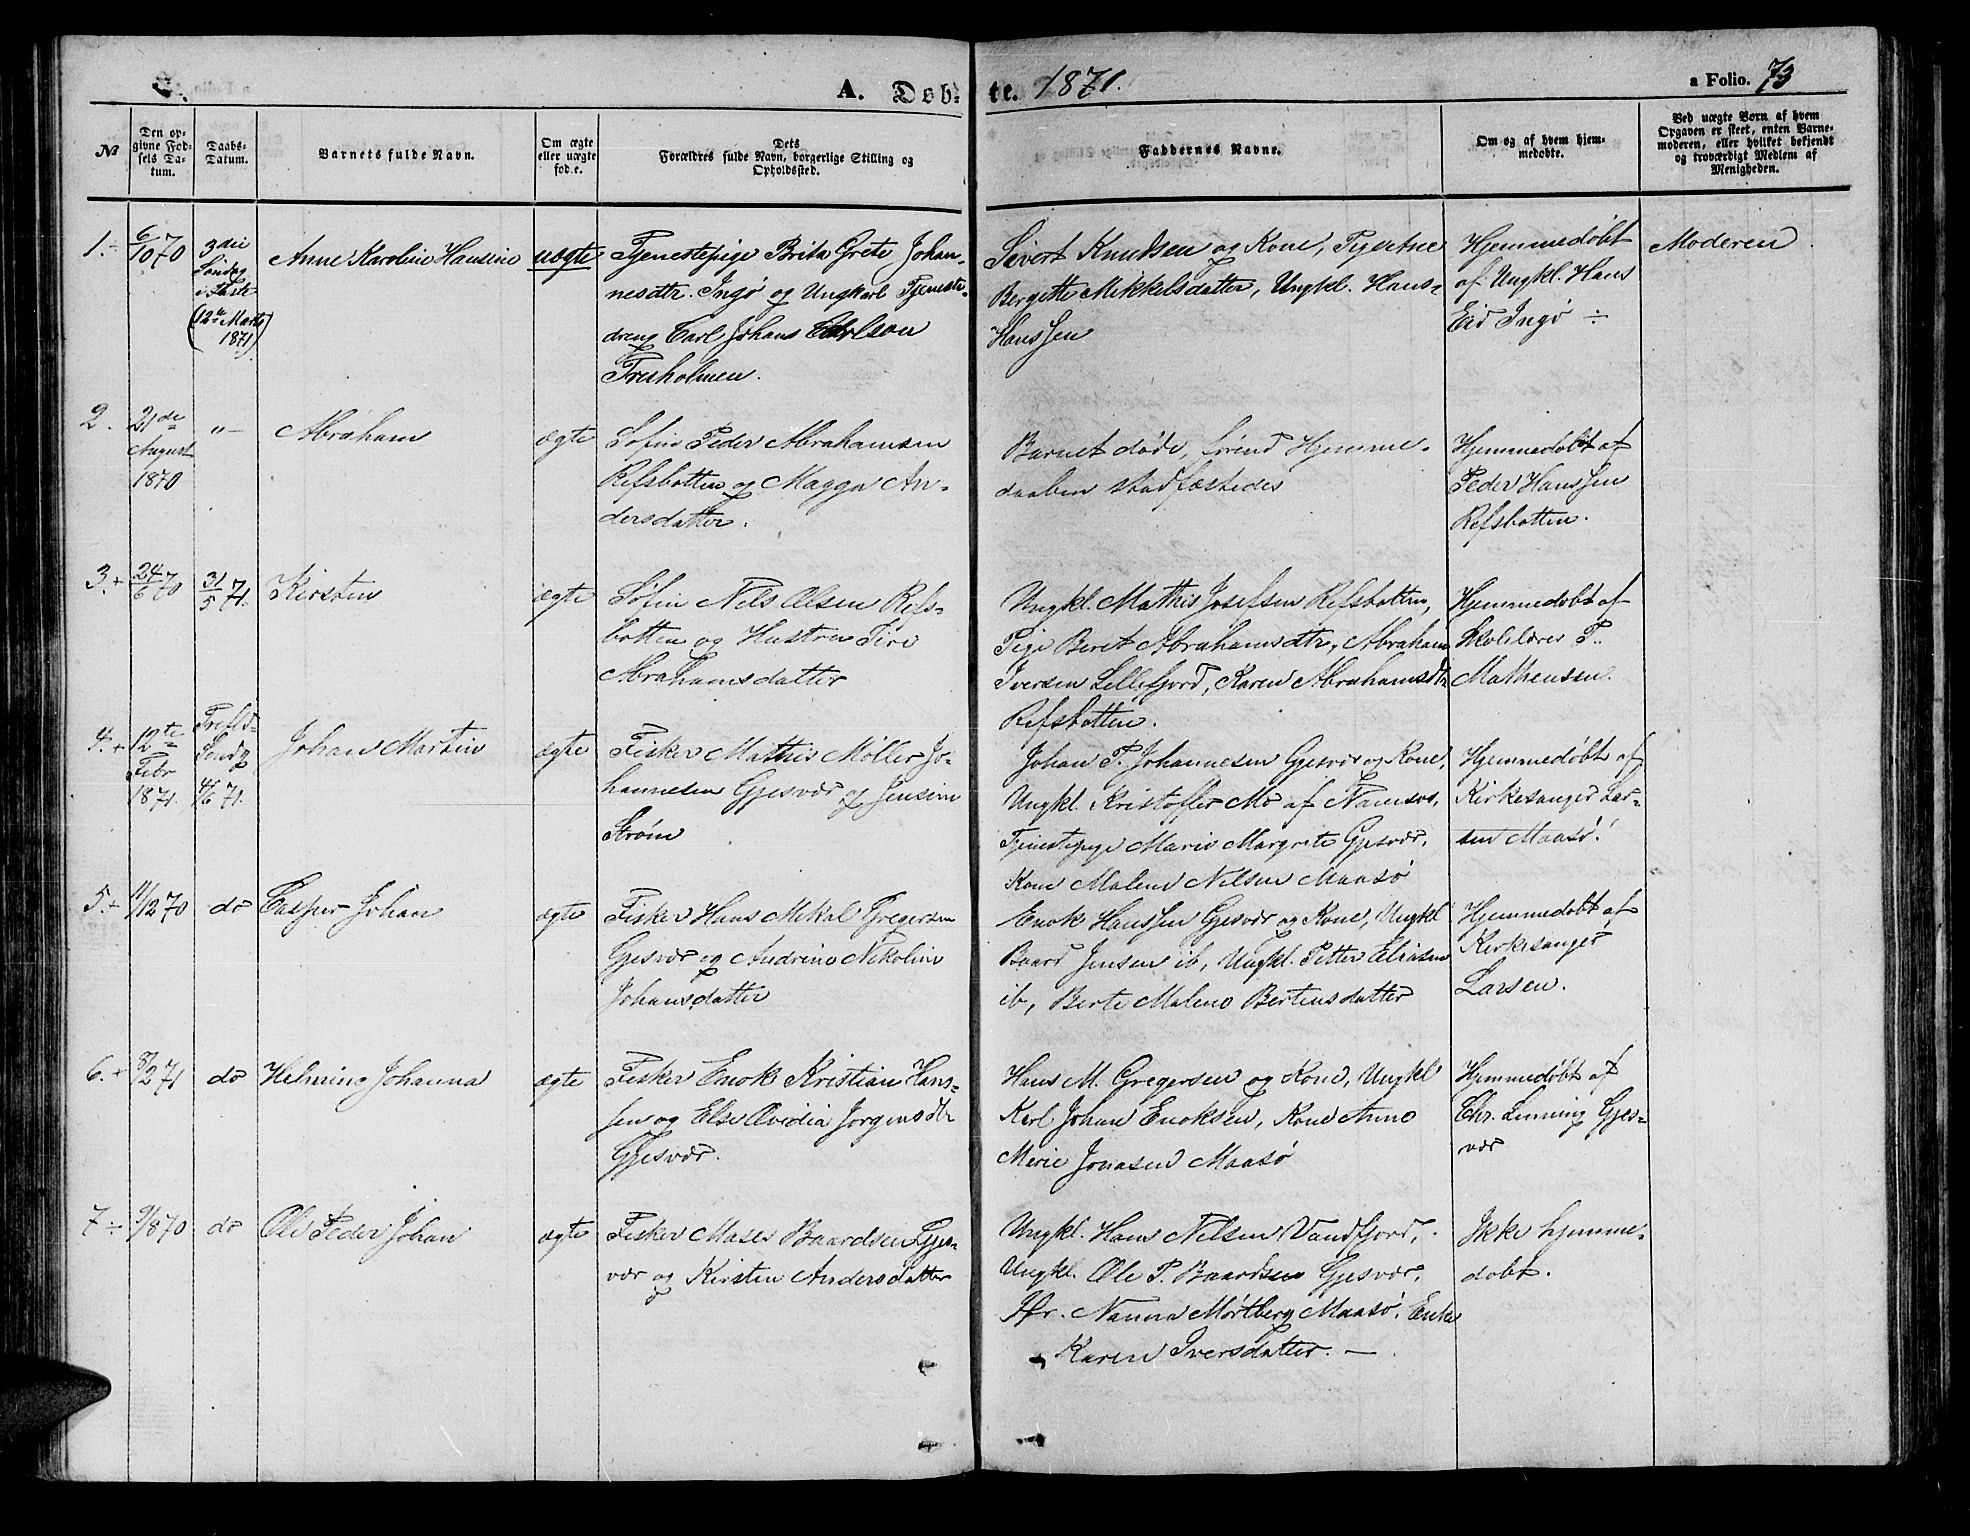 A. Døb-
te. 1871.
a Folio. 73
№
Den op-
givne Fød-
sels Da-
tum.
Daabs-
Datum.
Barnets fulde Navn.
Om ægte
eller uægte
fød.e.
Dets
Forældres fulde Navn, borgerlige Stilling og
Opholdssted.
Faddernes Navne.
Om og af hvem hjem-
medøbte.
Ved uægte Børn af hvem
Opgaven er skeet, enten Barne-
moderen, eller hvilket bekjendt
og troværdigt Medlem af
Menigheden.
1. ÷
6/10 70
3die
Søndag
i Faste
(12te Marts
1871)
Anne Karoline Hansine
uægte
Tjenestepige Brita Grete Johan-
nesdtr. Ingø og Ungkarl Tjeneste-
dreng Carl Johans Carlson
Fresholmen.
Sivert Knudsen og Kone, Pigerne
Bergitte Mikkelsdatter, Ungkl. Hans
Hanssen
Hjemmedøbt
af Ungkl. Hans
Eid Ingø ÷
Moderen
2.
21de
August
1870
"—
Abraham
ægte
Søfin Peder Abrahamsen
Refsbotten og Magga An-
dersdatter.
Barnet døde, førend Hjemme-
daaben stadfæstedes
Hjemmedøbt af
Peder Hanssen
Refsbotten.
3. +
24/6 70
31/5 71.
Kirsten
ægte
Søfin Nils Olsen Refs-
botten og Hustru Siri
Abrahamsdatter
Ungkl. Mathis Josefsen Refsbotten,
Pige Beret Abrahamsdtr, Abraham
Iversen Lillefjord, Karen Abrahamsdtr
Refsbotten.
Hjemmedøbt af
Skolelærer P.
Mathensen.
4. +
12te
Febr
1871.
Trefold.
Søndg
4/6 71.
Johan Martin
ægte
Fisker Mathis Møller Jo-
hannesen Gjesvær og Jensine
Strøm
Johan P. Johannesen Gjesvær og Kone,
Ungkl. Kristoffer Mo af Namsos,
Tjenestepige Marie Margrete Gjesvær,
Kone Malene Nilsen Maasø
Hjemmedøbt af
Kirkesanger Lar-
sen Maasø.
5. ÷
11/12 70
do
Casper Johan
ægte
Fisker Hans Mikal Gregersen
Gjesvær og Andrine Nikoline
Johansdatter
Enok Hanssen Gjesvær og Kone, Ungkl
Baard Jensen ib, Ungkl. Petter Eliasen
ib, Berte Malene Bertensdatter
Hjemmedøbt af
Kirkesanger
Larsen.
6. +
8/2 71
do
Helmine Johanna
ægte
Fisker Enok Kristian Hans-
sen og Else Ovidia Jørgensdtr
Gjesvær.
Hans M. Gregersen og Kone, Ungkl
Karl Johan Enoksen, Kone Anne
Merie Jonasen Maasø
Hjemmedøbt af
Chr. Lunning Gjes-
vær
7 ÷
9/8 70
do
Ole Peder Johan
ægte
Fisker Moses Baardsen Gjes-
vær og Kirsten Andersdatter
Ungkl. Hans Nilsen Vandfjord,
Ungkl. Ole P. Baardsen Gjesvær,
Jfr. Nanna Mørtberg Maasø, Enke
Karen Iversdatter. —
Ikke hjemme-
døbt.